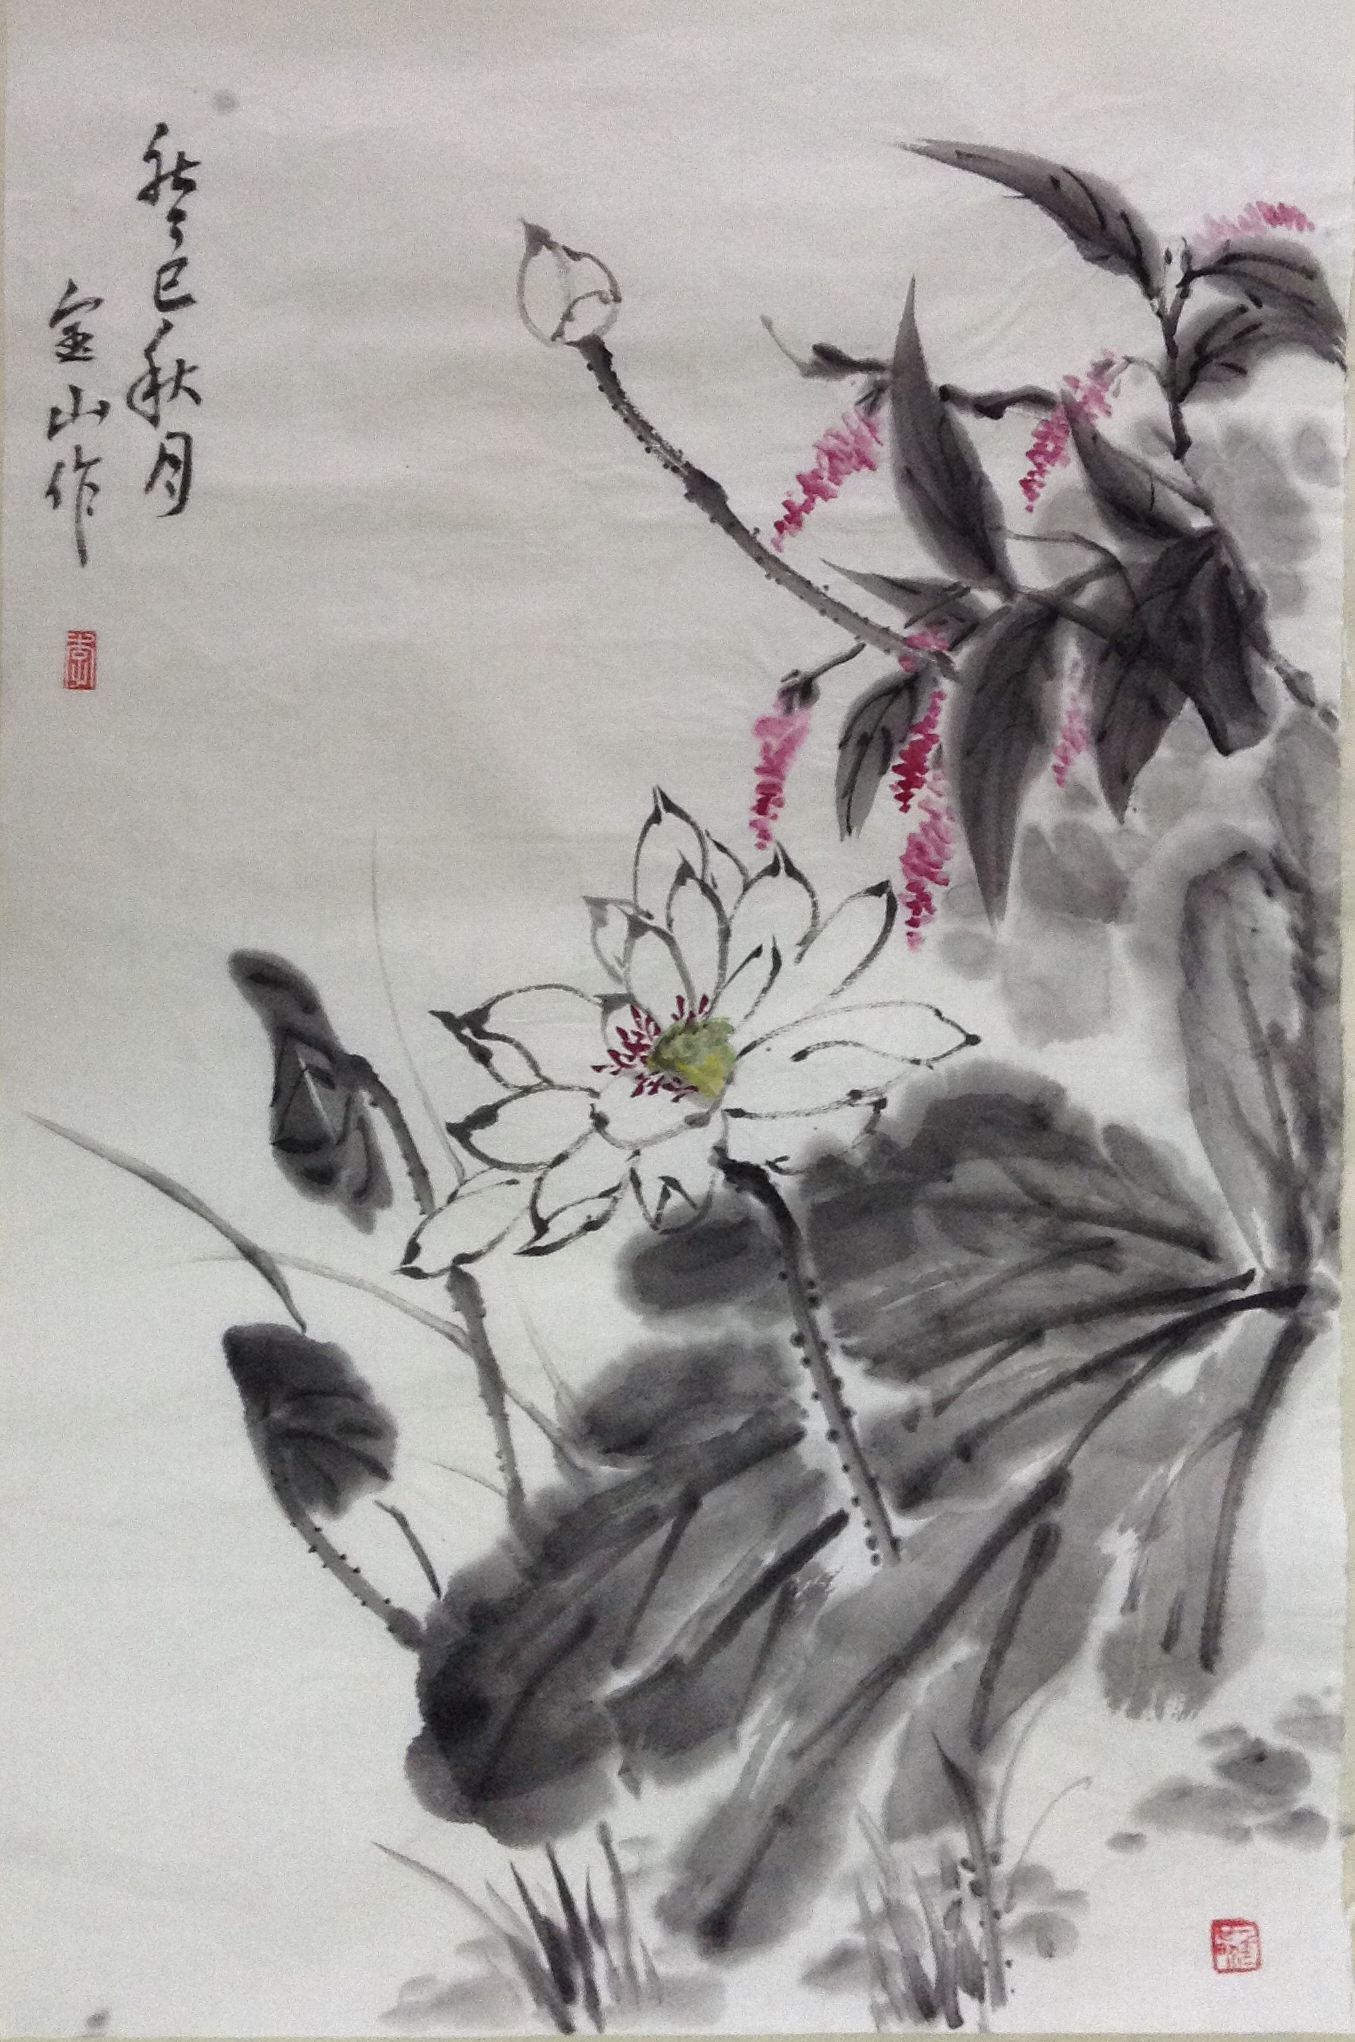 癸巳秋月
宝山作